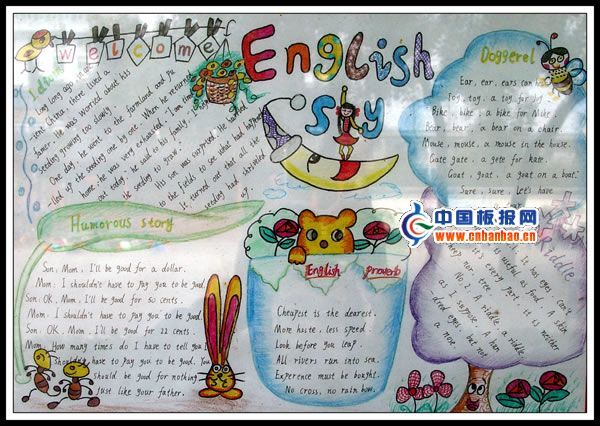 welcome
English
sky
Idium
Long long ago in
ent China, there lived a
famer. He was worried about his
seeding growing too slowly.
One day, he went to the farmland and pu
-lled up the seeding one by one. When he returned
home, he was very exhausted. "I am
out today," he said to his family, "I help
the seeding to grow."
His son was surprised. He hurried
to the fields to see what had happened
It turned out that all the
seeding had shriveled
Doggerel
Ear, ear, ears can hear
Toy, toy, a toy for boy
Bike, bike, a bike for Mike.
Bear, bear, a bear on a chair.
Mouse, mouse, a mouse in the house.
Gate gate, a gate for Kate.
Goat, goat, a goat on a boat.
Sure, sure, Let's have
中国板报网
www.cnbanbao.cn
Humorous story
Son: Mom, I'll be good for a dollar.
Mom: I shouldn't have to pay you to be good.
Son: OK, Mom, I'll be good for 50 cents.
Mom: I shouldn't have to pay you to be good.
Son: OK, Mom, I'll be good for 22 cents.
Mom: How many times do I have to tell you I
Shouldn't have to pay you to be good. You
should be good for nothing
just like your father.
English proverb
Cheapest is the dearest.
More haste, less speed.
Look before you leap.
All rivers run into sea.
Experence must be bought.
No cross, no rain bow.
Riddle
It has eyes can't
useful as food. A skin
every part, it is neither
No. 2. A riddle, a riddle,
as I suppose. A hun
dred eyes, but not
a nose